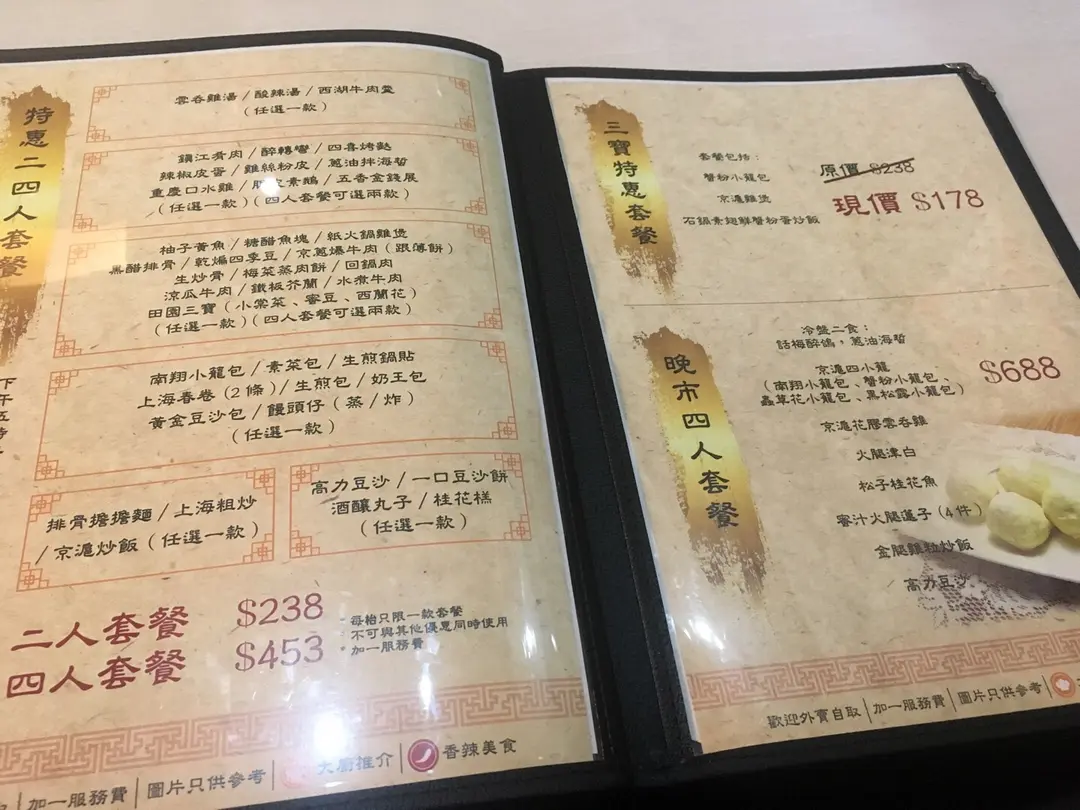 特惠二四人套餐
雲吞雞湯/酸辣湯/西湖牛肉羹
(任選一款)
鎮江肴肉/醉轉彎/四喜烤麩
辣椒皮蛋/雞絲粉皮/蔥油拌海蜇
重慶口水雞/皮素鵝/五香金錢展
(任選一款)(四人套餐可選兩款)
柚子黃魚/糖醋魚塊/紙火鍋雞煲
黑醋排骨/乾煸四季豆/京蔥爆牛肉(跟薄餅)
生炒骨/梅菜蒸肉餅/回鍋肉
涼瓜牛肉/鐵板芥蘭/水煮牛肉
田園三寶(小棠菜、蜜豆、西蘭花)
(任選一款)(四人套餐可選兩款)
南翔小籠包/素菜包/生煎鍋貼
上海春卷(2條)/生煎包/奶王包
黃金豆沙包/饅頭仔(蒸/炸)
(任選一款)
排骨擔擔麵/上海粗炒
/京滬炒飯(任選一款)
高力豆沙/一口豆沙餅
酒釀丸子/桂花糕
(任選一款)
二人套餐 $238
四人套餐 $453
·每枱只限一款套餐
·不可與其他優惠同時使用
·加一服務費
下午五時
加一服務費|圖片只供參考
大廚推介|香辣美食
三寶特惠套餐
套餐包括:
蟹粉小籠包
京滬雞煲
石鍋素翅鮮蟹粉蛋炒飯
原價 $238
現價 $178
晚市四人套餐
冷盤二食:
話梅醉鴿,蔥油海蜇
京滬四小籠
(南翔小籠包、蟹粉小籠包、
蟲草花小籠包、黑松露小籠包)
京滬花膠雲吞雞
火腿津白
松子桂花魚
蜜汁火腿蓮子(4件)
金腿雞粒炒飯
高力豆沙
$688
歡迎外賣自取|加一服務費|圖片只供參考